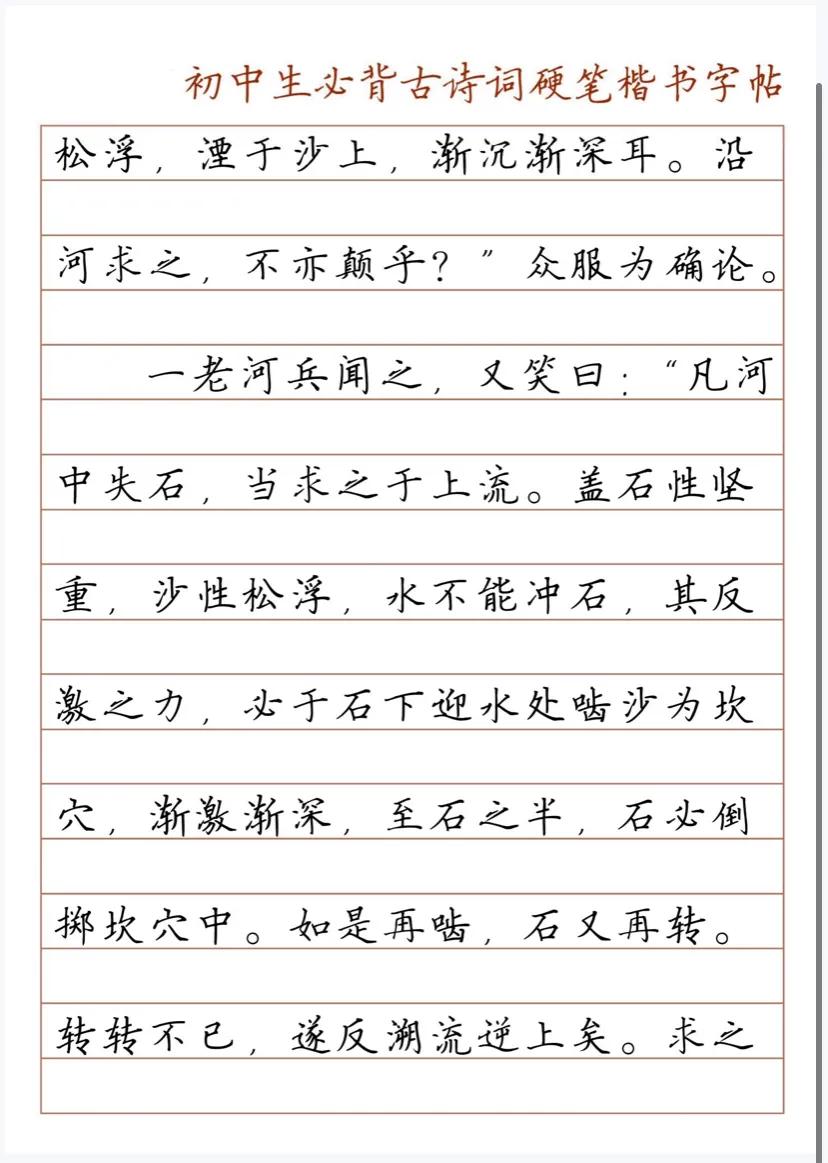 初中生必背古诗词硬笔楷书字帖
松浮，湮于沙上，渐沉渐深耳。沿
河求之，不亦颠乎？”众服为确论。
一老河兵闻之，又笑曰：“凡河
中失石，当求之于上流。盖石性坚
重，沙性松浮，水不能冲石，其反
激之力，必于石下迎水处啮沙为坎
穴，渐激渐深，至石之半，石必倒
掷坎穴中。如是再啮，石又再转。
转转不已，遂反溯流逆上矣。求之